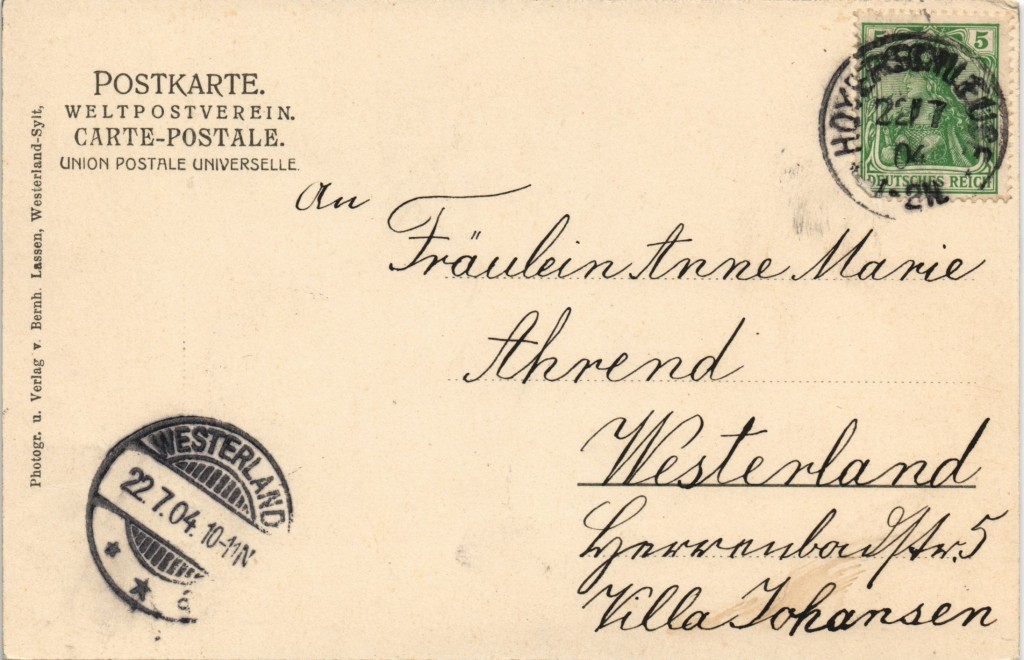 POSTKARTE.
WELTPOSTVEREIN.
CARTE-POSTALE.
UNION POSTALE UNIVERSELLE.
Photogr. u. Verlag v. Bernh. Lassen, Westerland-Sylt,
5 5
DEUTSCHES REICH
HOYERSCHLEUSE
22/7
04
1-2N.
An
Fräulein Anne Marie
Ahrend
Westerland
Herrenbadstr. 5
Villa Johansen
WESTERLAND
22.7.04. 10-11N